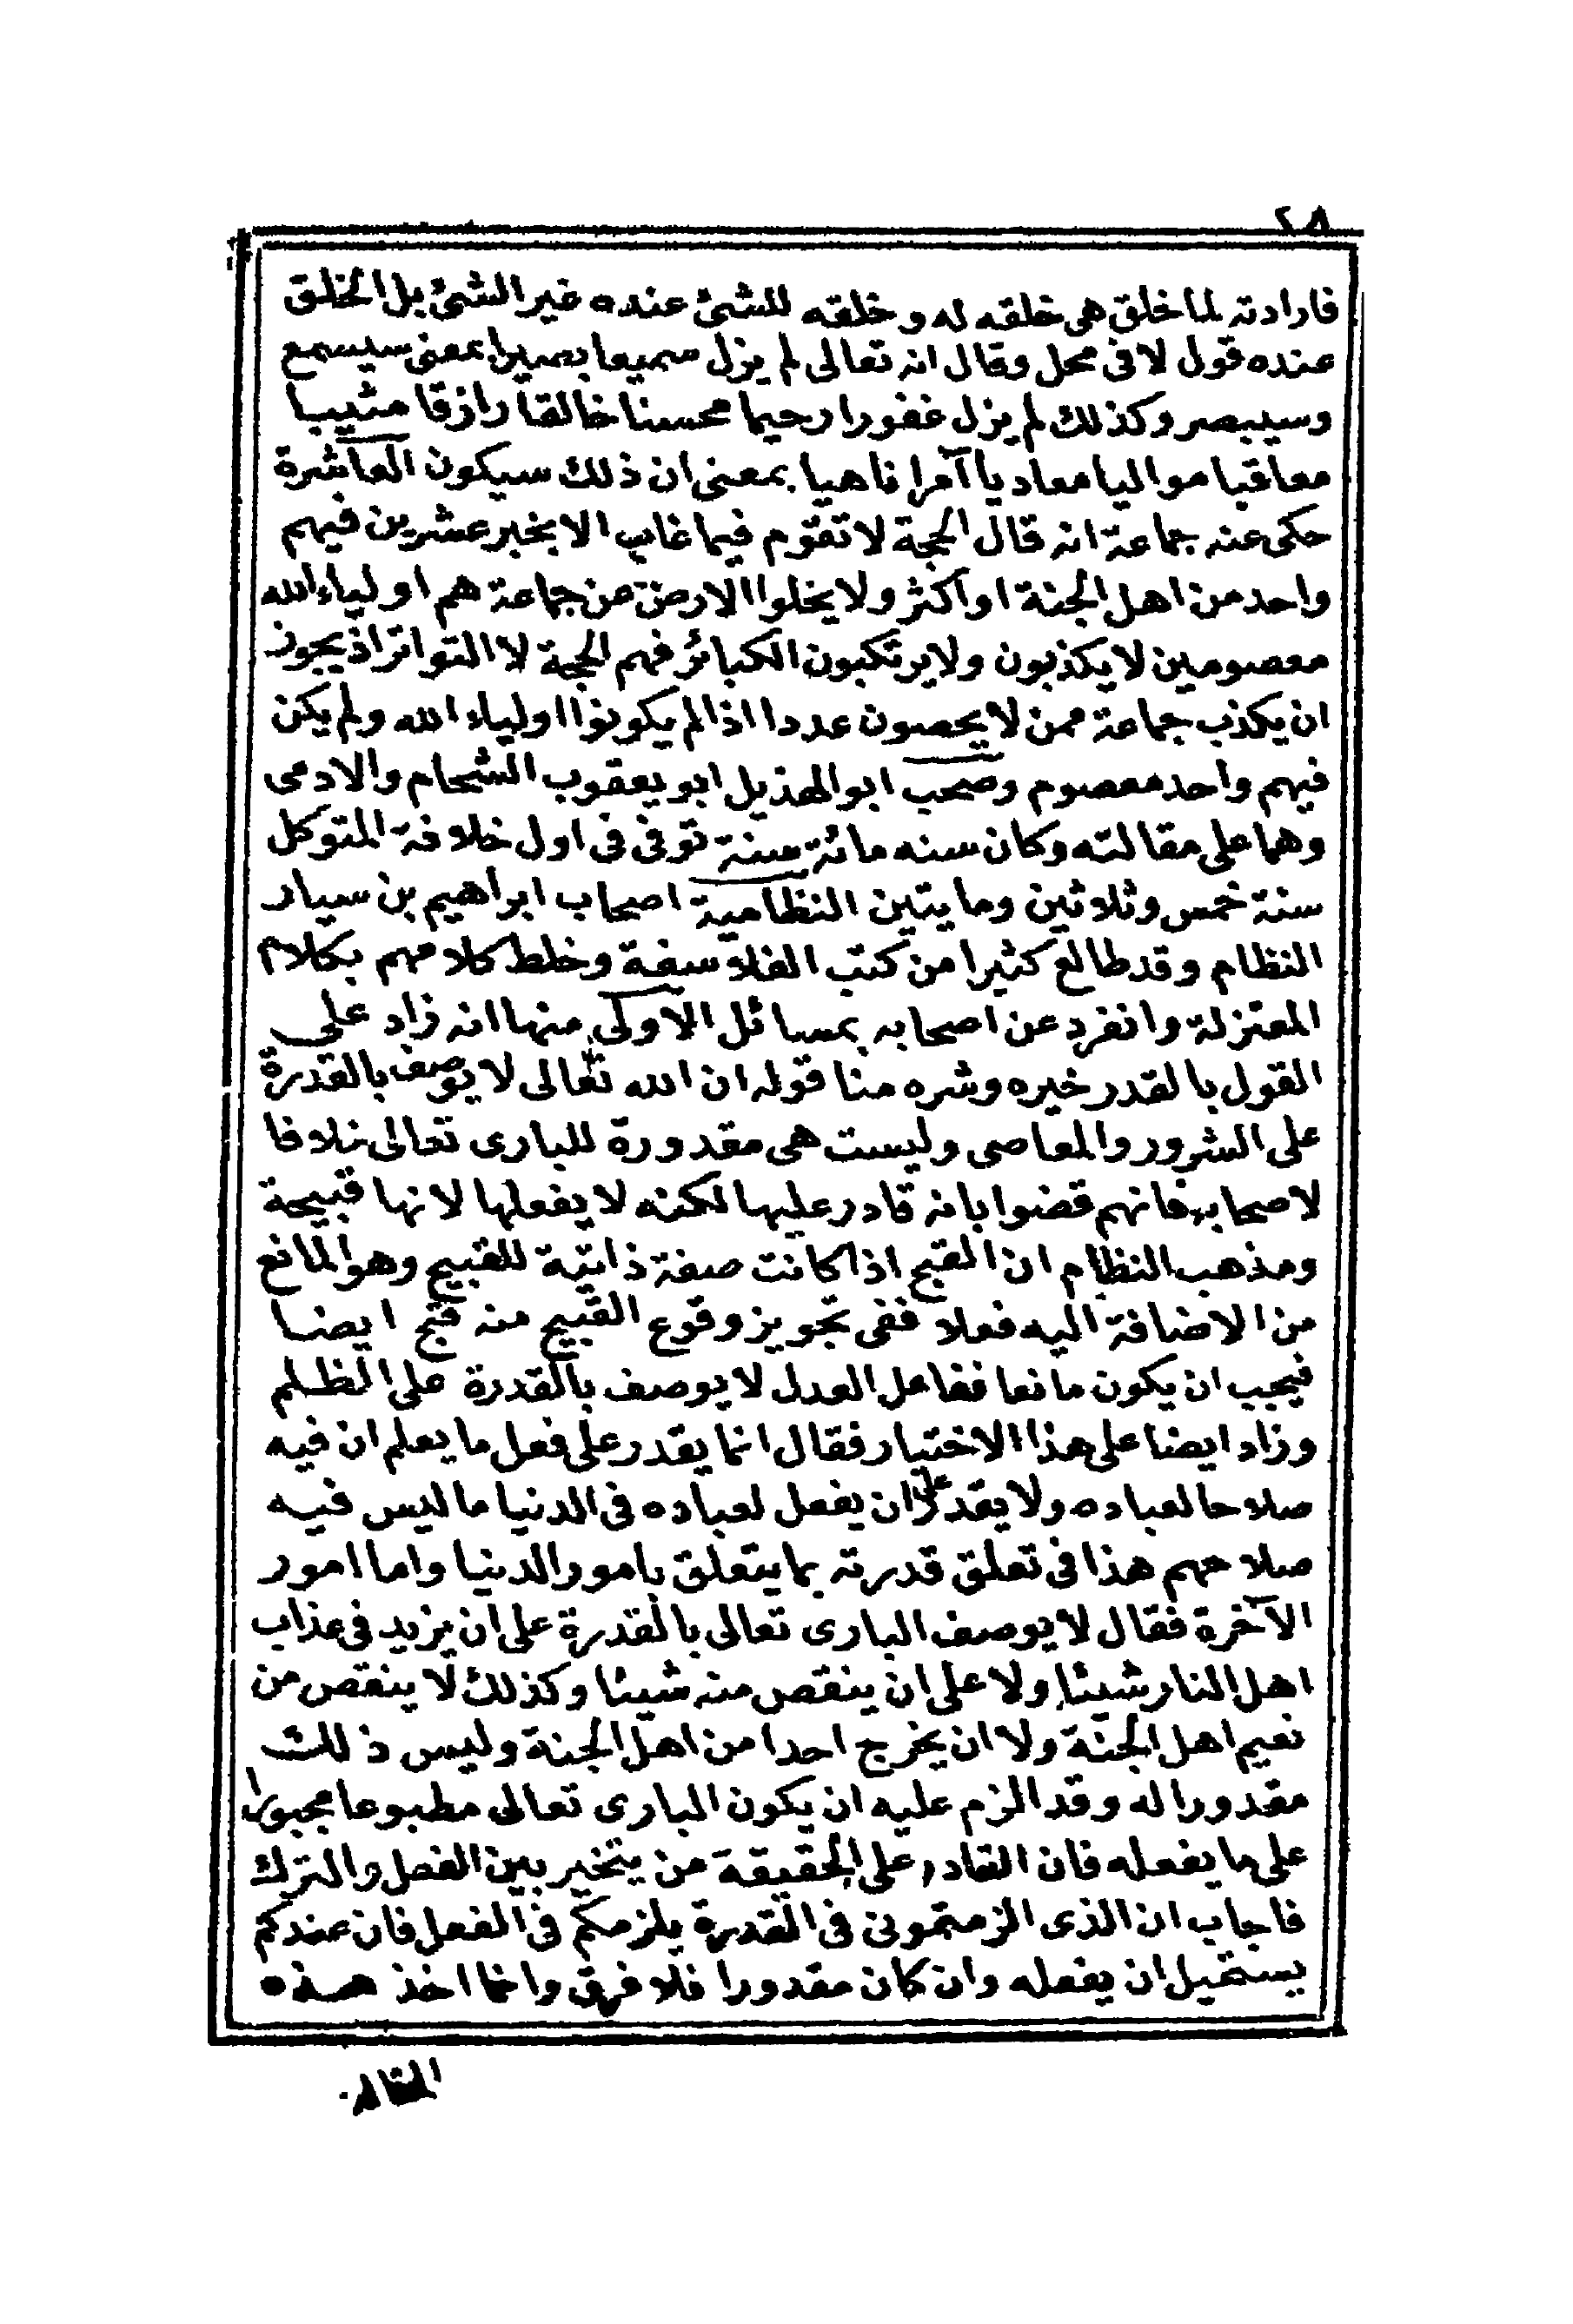 ٢٨
فارادته لما خلق هى خلقه له و خلقه للشئ عنده غير الشئ بل الخلق
عنده قول لا فى محل وقال انه تعالى لم يزل سميعا بصيرا بمعنى سيسمع
وسيبصر وكذلك لم يزل غفورا رحيما محسنا خالقا رازقا مثيبا
معاقبا مواليا معاديا آمرا ناهيا بمعنى ان ذلك سيكون العاشرة
حكى عنه جماعة انه قال الحجة لا تقوم فيما غاب الا بخبر عشرين فيهم
واحد من اهل الجنة او اكثر ولا يخلوا الارض من جماعة هم اولياء الله
معصومين لا يكذبون ولا يرتكبون الكبائر فهم الحجة لا التواتر اذ يجوز
ان يكذب جماعة ممن لا يحصون عددا اذا لم يكونوا اولياء الله ولم يكن
فيهم واحد معصوم وصحب ابو الهذيل ابو يعقوب الشحام والادمى
وهما على مقالته وكان سنه مائة سنة توفى فى اول خلافة المتوكل
سنة خمس وثلاثين ومايتين النظامية اصحاب ابراهيم بن سيار
النظام وقد طالع كثيرا من كتب الفلاسفة وخلط كلامهم بكلام
المعتزلة وانفرد عن اصحابه بمسائل الاولى منها انه زاد على
القول بالقدر خيره وشره منا قوله ان الله تعالى لا يوصف بالقدرة
على الشرور والمعاصى وليست هى مقدورة للبارى تعالى خلافا
لاصحابه فانهم قضوا بانه قادر عليها لكنه لا يفعلها لانها قبيحة
ومذهب النظام ان القبح اذا كانت صفة ذاتية للقبيح وهو المانع
من الاضافة اليه فعلا ففى تجويز وقوع القبيح منه قبح ايضا
فيجب ان يكون مانعا ففاعل العدل لا يوصف بالقدرة على الظلم
وزاد ايضا على هذا الاختيار فقال انما يقدر على فعل ما يعلم ان فيه
صلاحا لعباده ولا يقدر على ان يفعل لعباده فى الدنيا ما ليس فيه
صلاحهم هذا فى تعلق قدرته بما يتعلق بامور الدنيا واما امور
الآخرة فقال لا يوصف البارى تعالى بالقدرة على ان يزيد فى عذاب
اهل النار شيئا ولا على ان ينقص منه شيئا وكذلك لا ينقص من
نعيم اهل الجنة ولا ان يخرج احدا من اهل الجنة وليس ذلك
مقدورا له وقد الزم عليه ان يكون البارى تعالى مطبوعا مجبورا
على ما يفعله فان القادر على الحقيقة من يتخير بين الفعل والترك
فاجاب ان الذى الزمتمونى فى القدرة يلزمكم فى الفعل فان عندكم
يستحيل ان يفعله وان كان مقدورا فلا فرق وانما اخذ هذه